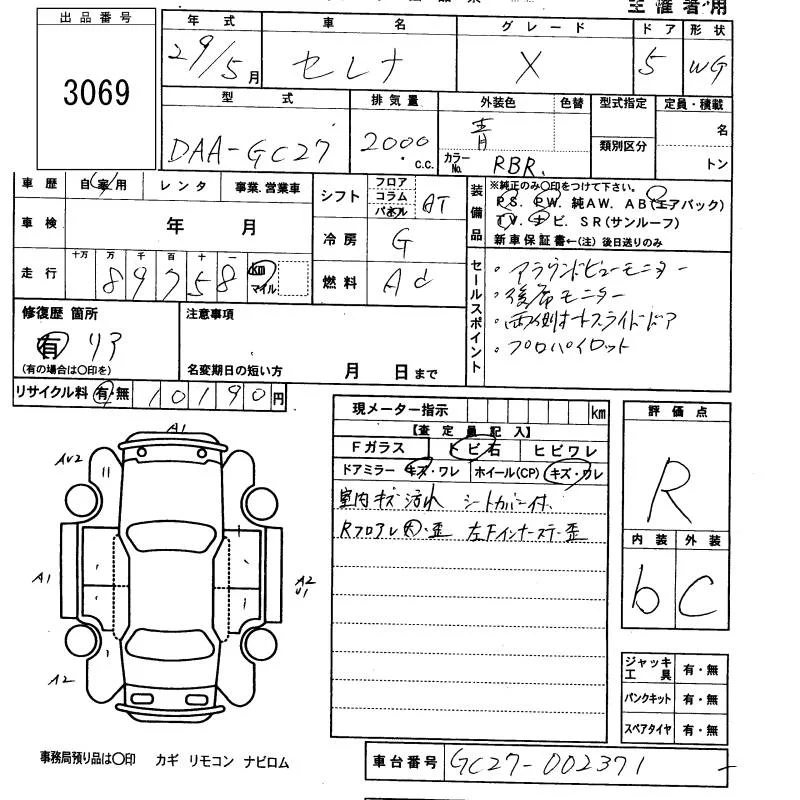 主催者用
出品番号
3069
年式 車名 グレード ドア 形状
29/5月 セレナ X 5 WG
型式 排気量 外装色 色替 型式指定 定員・積載
DAA-GC27 2000 c.c. 青 類別区分 名
カラーNo. RBR. トン
車歴 自家用 レンタ 事業.営業車
車検 年 月
走行 十万 万 千 百 十 一
89758 km マイル
シフト フロア コラム パネル AT
冷房 G
燃料
装備品
※純正のみ○印をつけて下さい。
PS. PW. 純AW. AB(エアバック)
TV. ナビ. SR(サンルーフ)
新車保証書←(注) 後日送りのみ
セールスポイント
・アラウンドビューモニター
・後席モニター
・両側オートスライドドア
・プロパイロット
修復歴 箇所
有 リア
(有の場合は○印を)
注意事項
名変期日の短い方 月 日まで
リサイクル料 有・無 10190円
現メーター指示 km
【査定員記入】
Fガラス トビ石 ヒビワレ
ドアミラー キズ・ワレ ホイール(CP) キズ・ワレ
室内キズ汚れ シートカバー付.
左下インナーステー歪
評価点
R
内装 外装
b C
A1
AV2
A1
A2
A2
ジャッキ工具 有・無
パンクキット 有・無
スペアタイヤ 有・無
事務局預り品は○印 カギ リモコン ナビロム
車台番号 GC27-002371